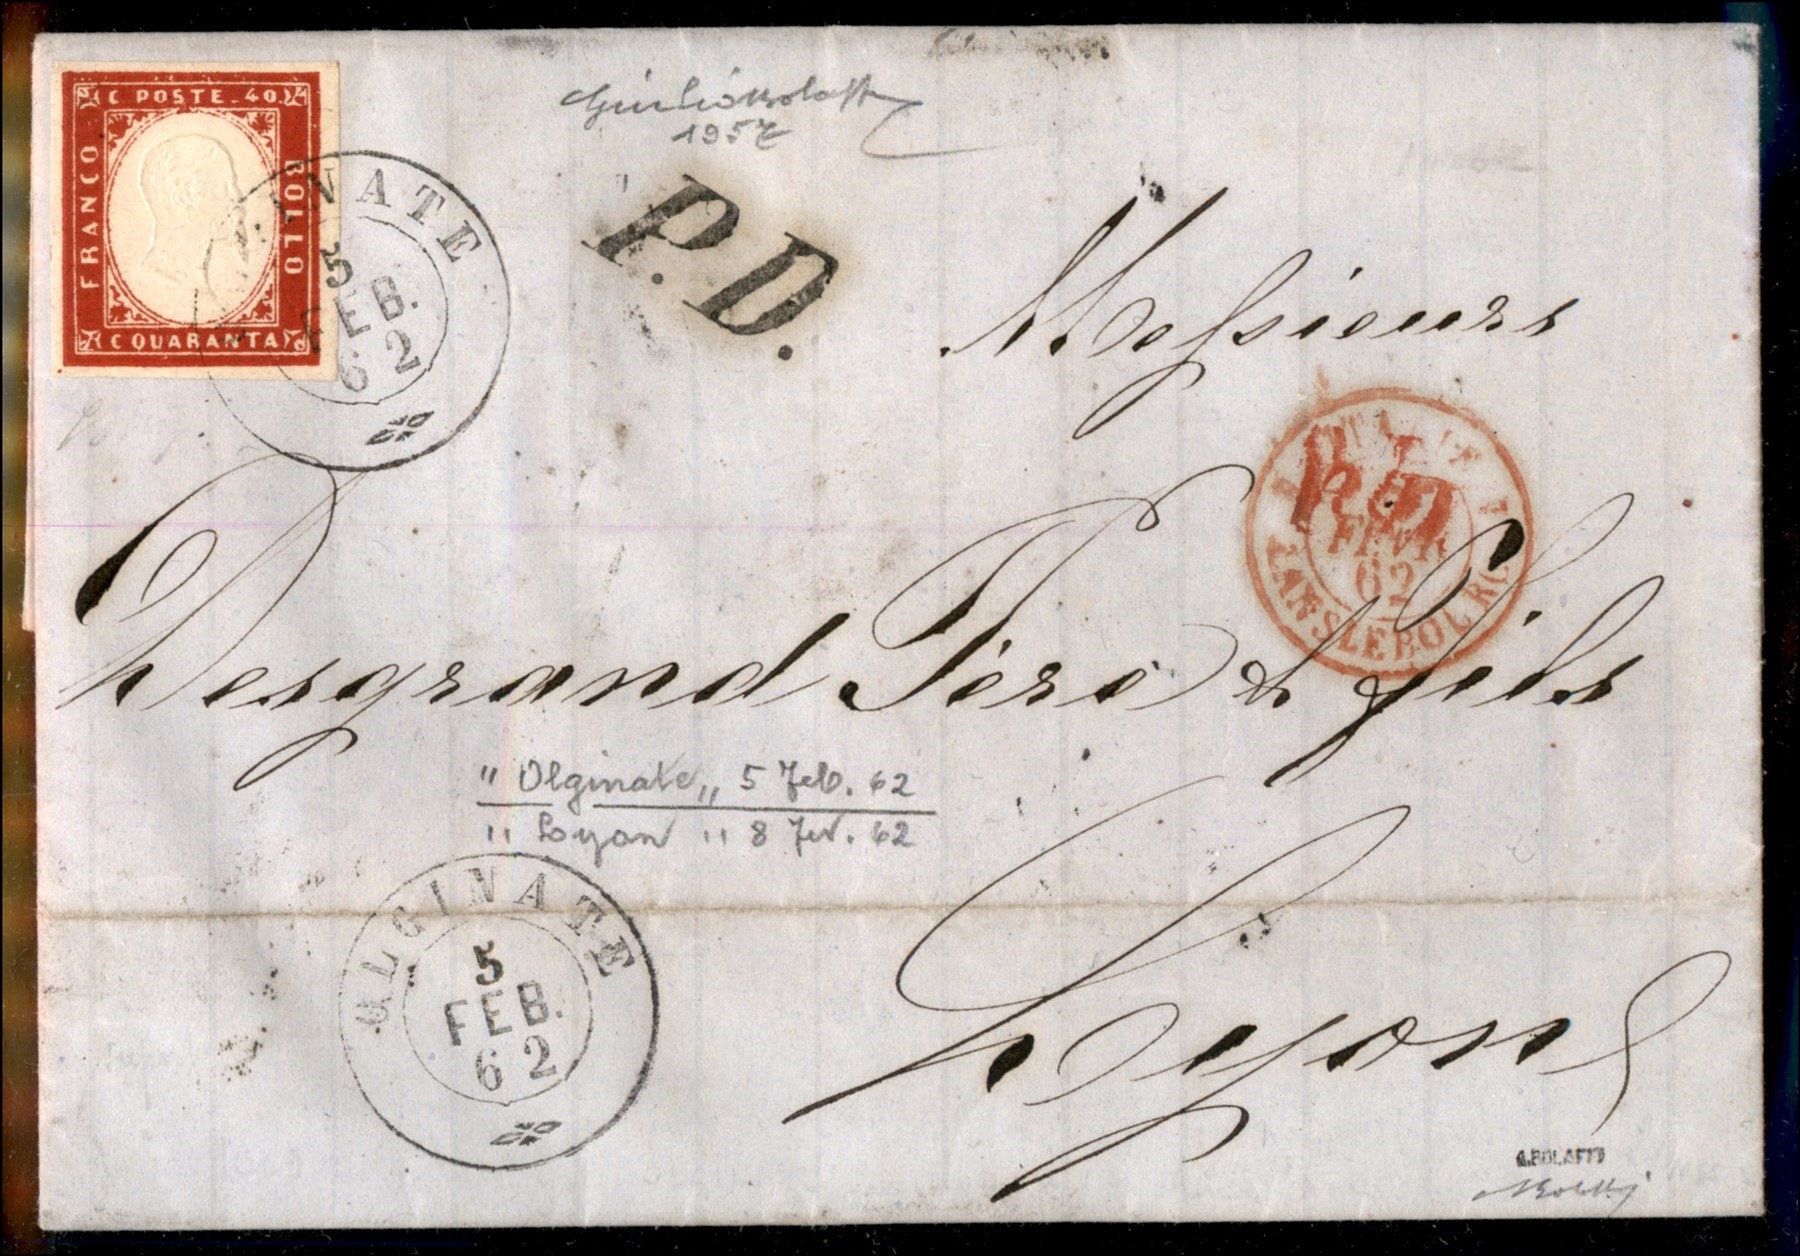 C POSTE 40.
FRANCO
BOLLO
C QUARANTA
INATE
5
FEB.
62
1957
P.D.
Messieurs
P.D.
FEVR
62
LANSLEBOURG
Desgrand Père & Fils
" Olginate „ 5 Feb. 62
" Lyon " 8 Fev. 62
OLGINATE
5
FEB.
62
Lyon
A.BOLAFFI